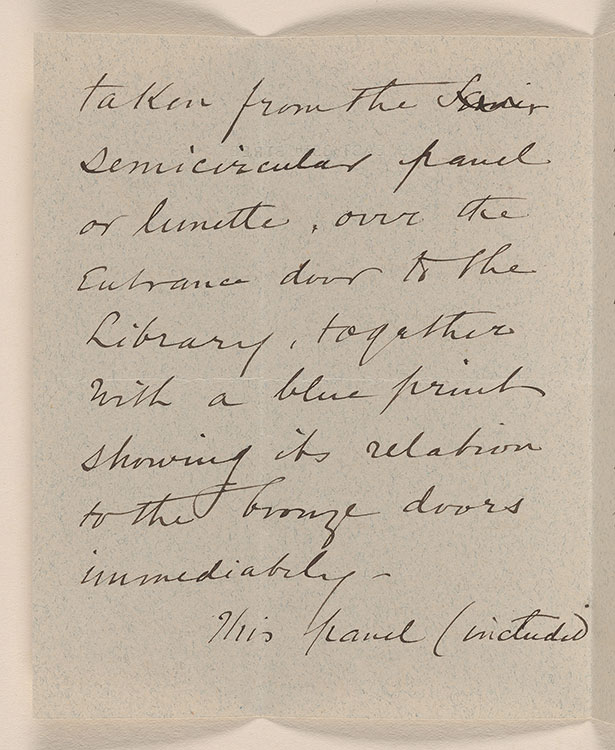 taken from the ~~Semi-~~
semicircular panel
or lunette, over the
Entrance door to the
Library, together
with a blue print
showing its relation
to the bronze doors
immediately –
This panel (included